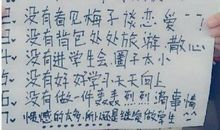 没有看见妹子谈恋爱
没有背包处处旅游、散心
没有进学生会圈子太小
没有好好学习天天向上
没有做一件轰轰烈烈的事情
所以还是继续做学生